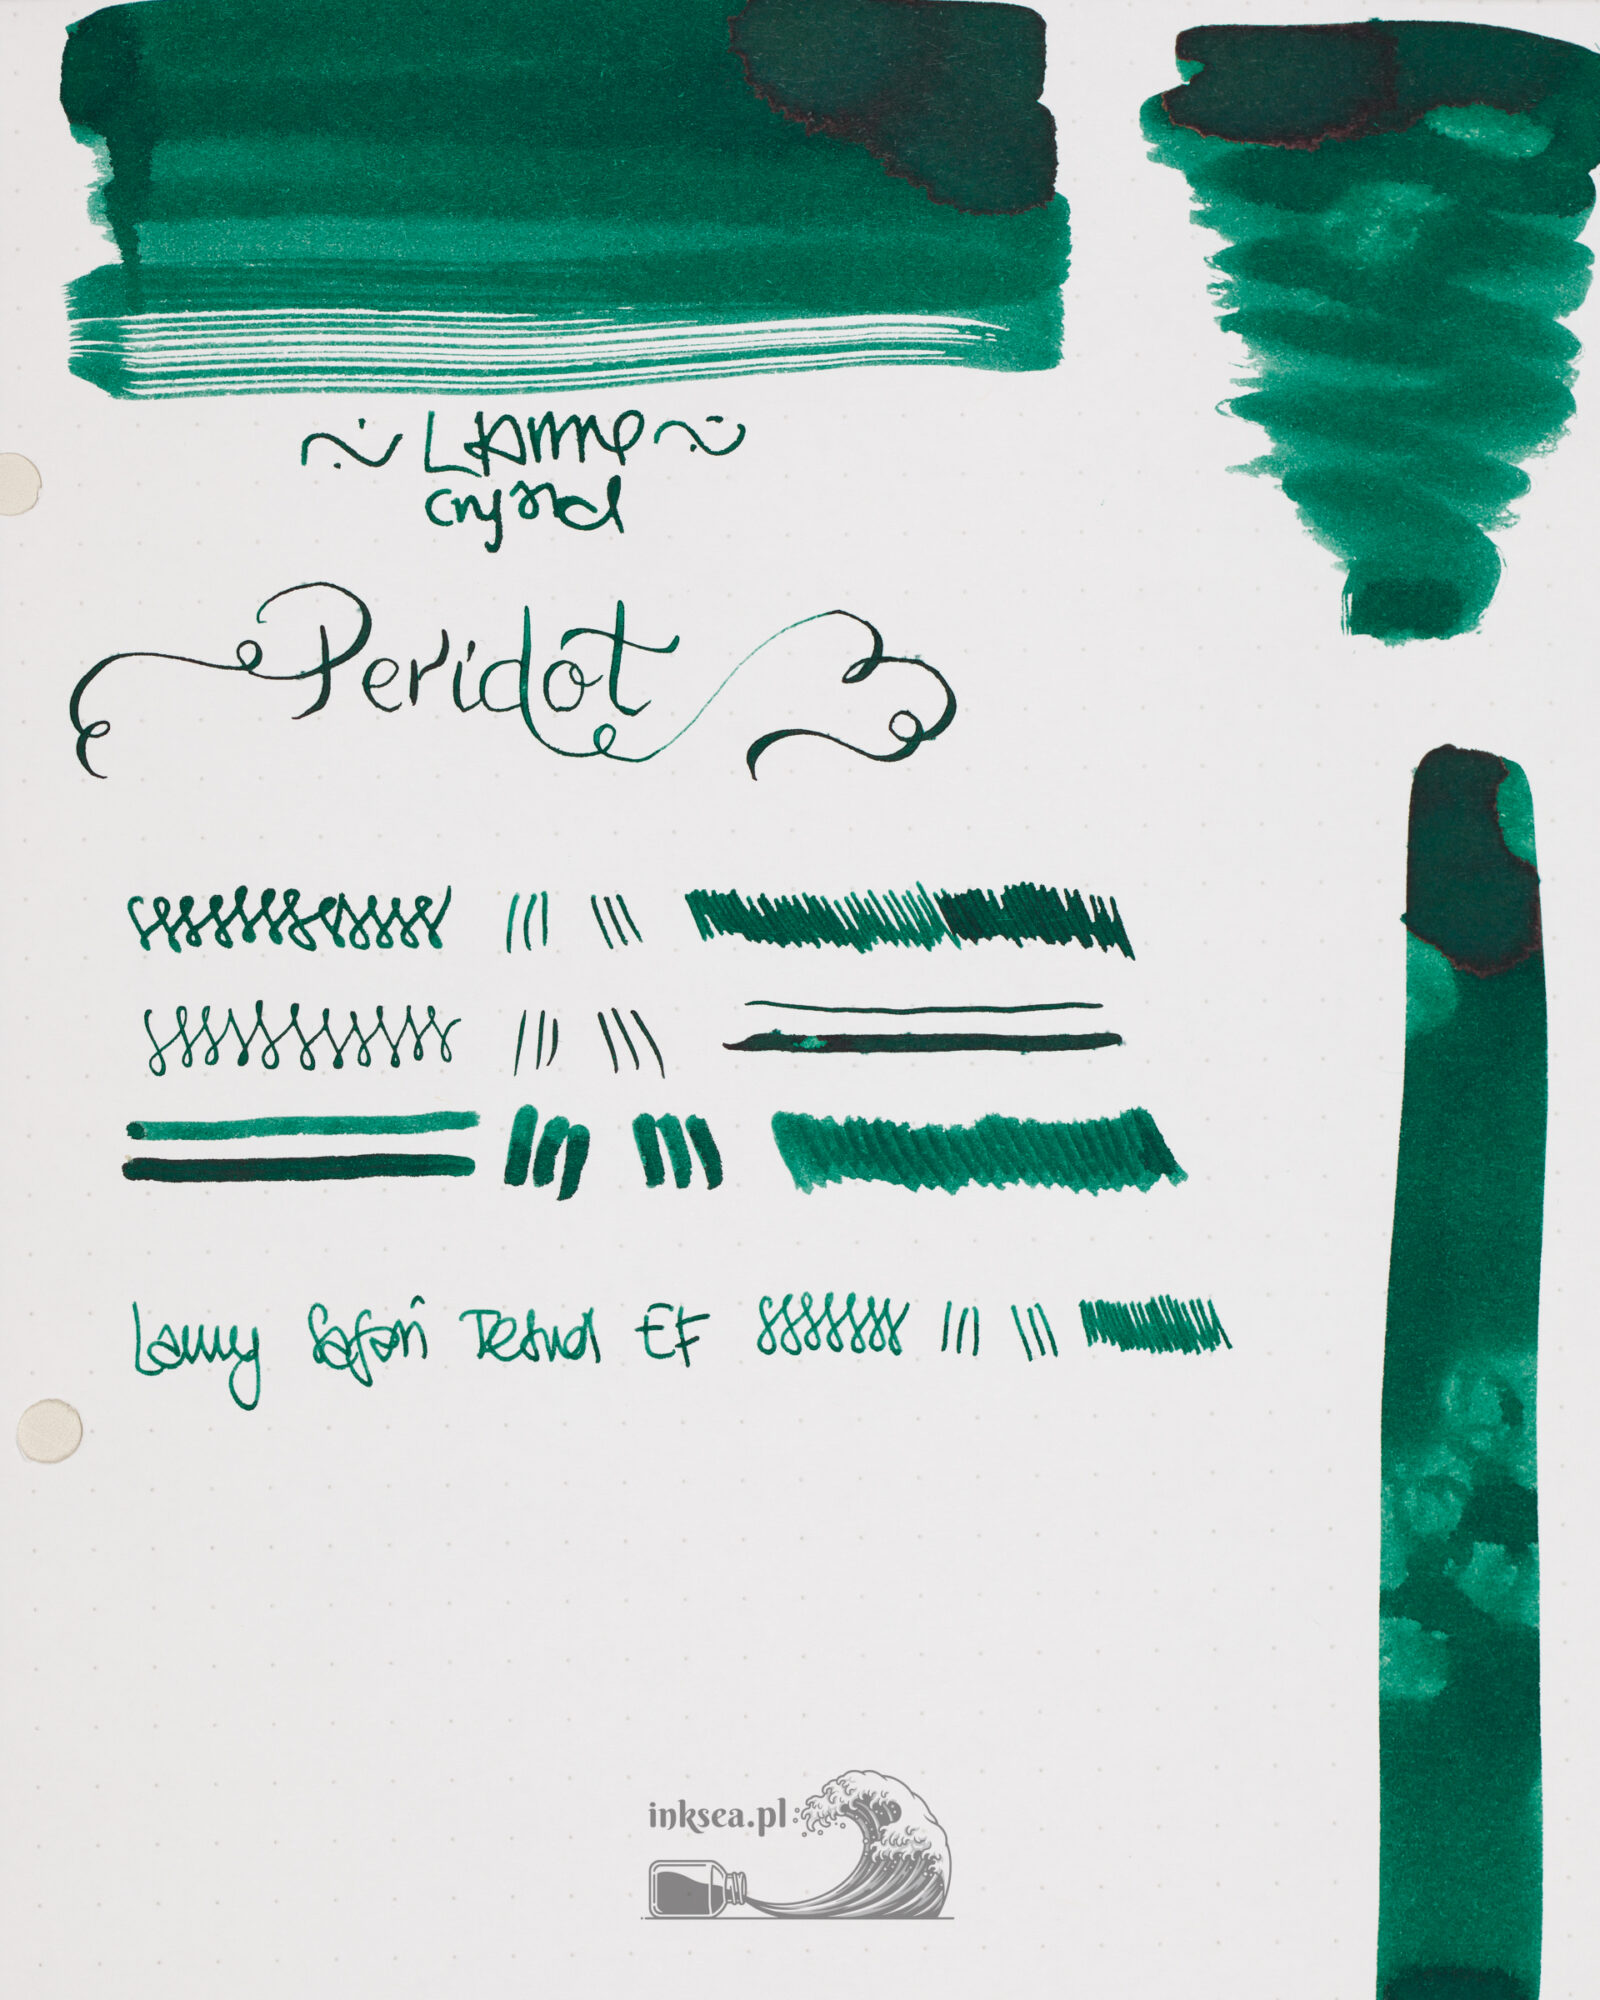 Lamy
crystal
Peridot
Lamy Safari Petrol EF
inksea.pl